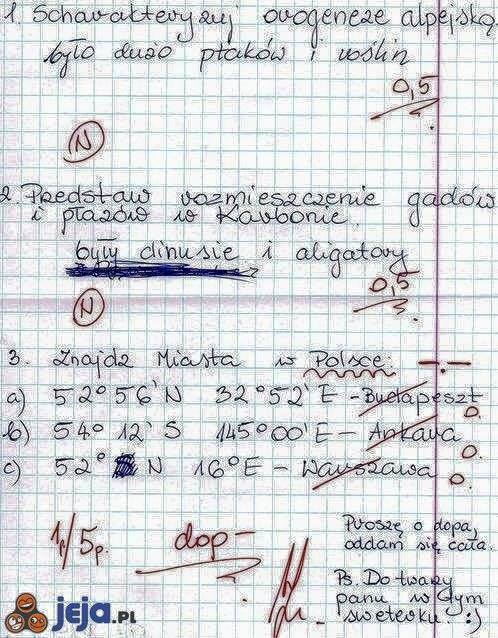 1. Scharakteryzuj orogenezę alpejską
było dużo ptaków i roślin
0,5
N
2. Przedstaw rozmieszczenie gadów
i płazów w Karbonie.
były dinusie i aligatory
0,5
N
3. Znajdz Miasta w Polsce: -.-
a) 52° 56' N 32° 52' E - Budapeszt 0.
b) 54° 12' S 145° 00' E - Ankara 0.
c) 52° N 16° E - Warszawa 0.
1/5p. dop-
Proszę o dopa,
oddam się cała.
Ps. Do twarzy
panu w tym
sweterku! :)
jeja.pl